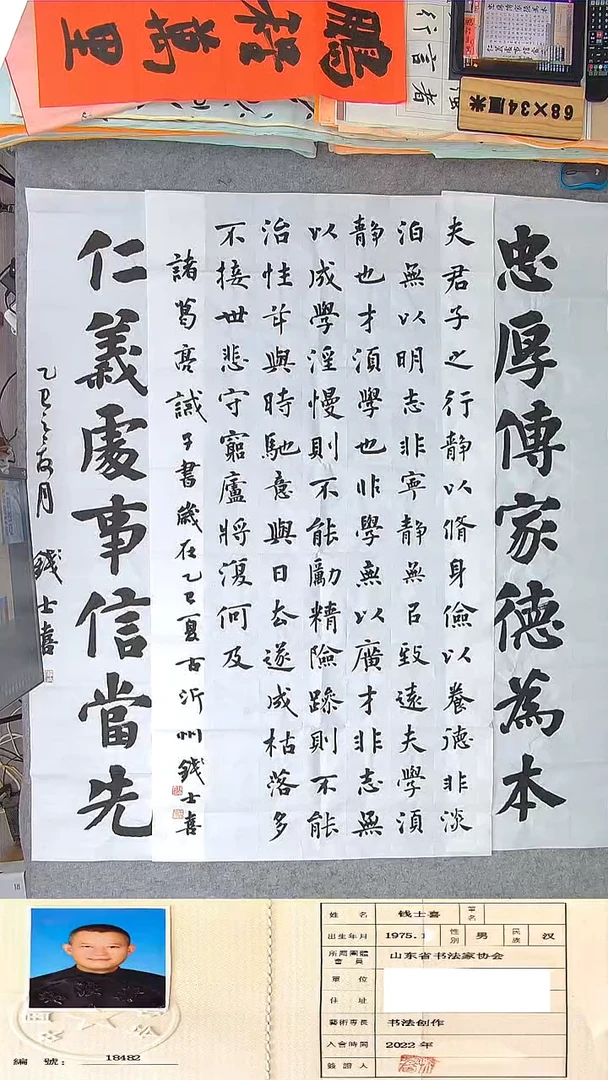 鵬程萬里
68×34厘米
忠厚傳家德為本
夫君子之行静以脩身儉以養德非淡
泊無以明志非寧静無以致遠夫學須
静也才須學也非學無以廣才非志無
以成學淫慢則不能勵精險躁則不能
治性年與時馳意與日去遂成枯落多
不接世悲守窮廬將復何及
諸葛亮誡子書歲在乙巳夏古沂州錢士喜
仁義處事信當先
乙巳
月 錢士喜
編 號： 18482
姓 名 钱士喜 筆名
出生年月 1975.1 性別 男 民族 汉
所屬團體會員 山东省书法家协会
單 位
住 址
藝術專長 书法创作
入會時間 2022年
簽證人